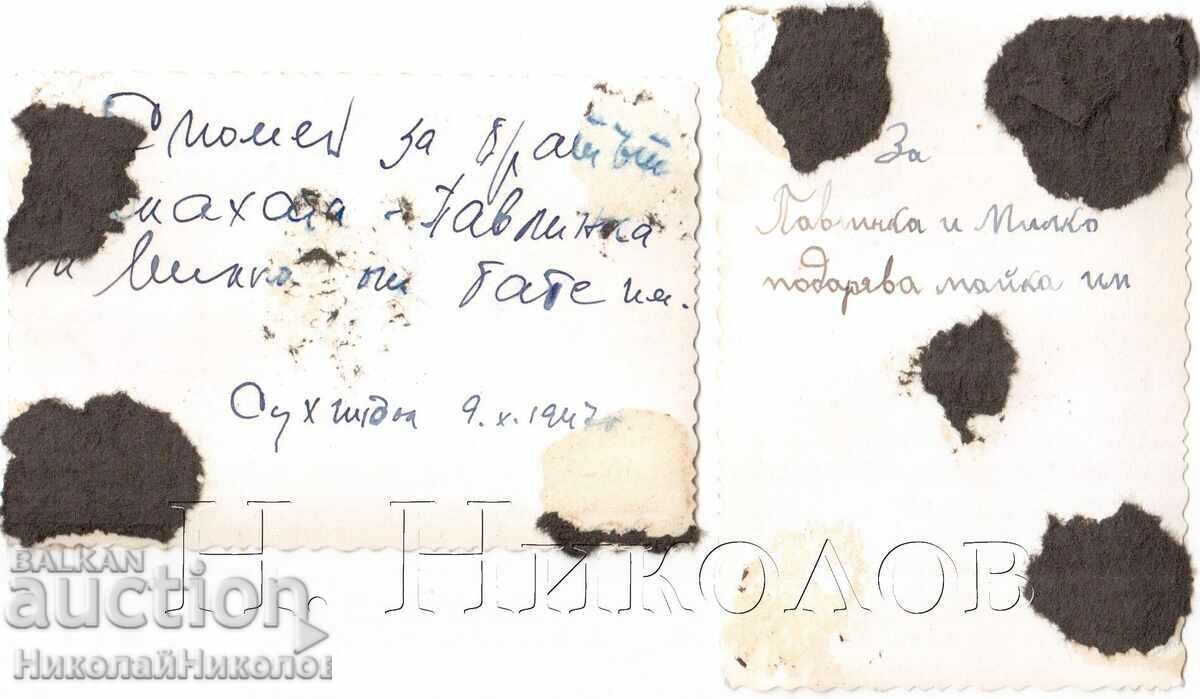 Спомен за
махала - Павлинка
от бате им.
Сухиндол 9.X.1947
За
Павлинка и Милко
подарява майка им
Н. Николов
BALKAN
auction
НиколайНиколов